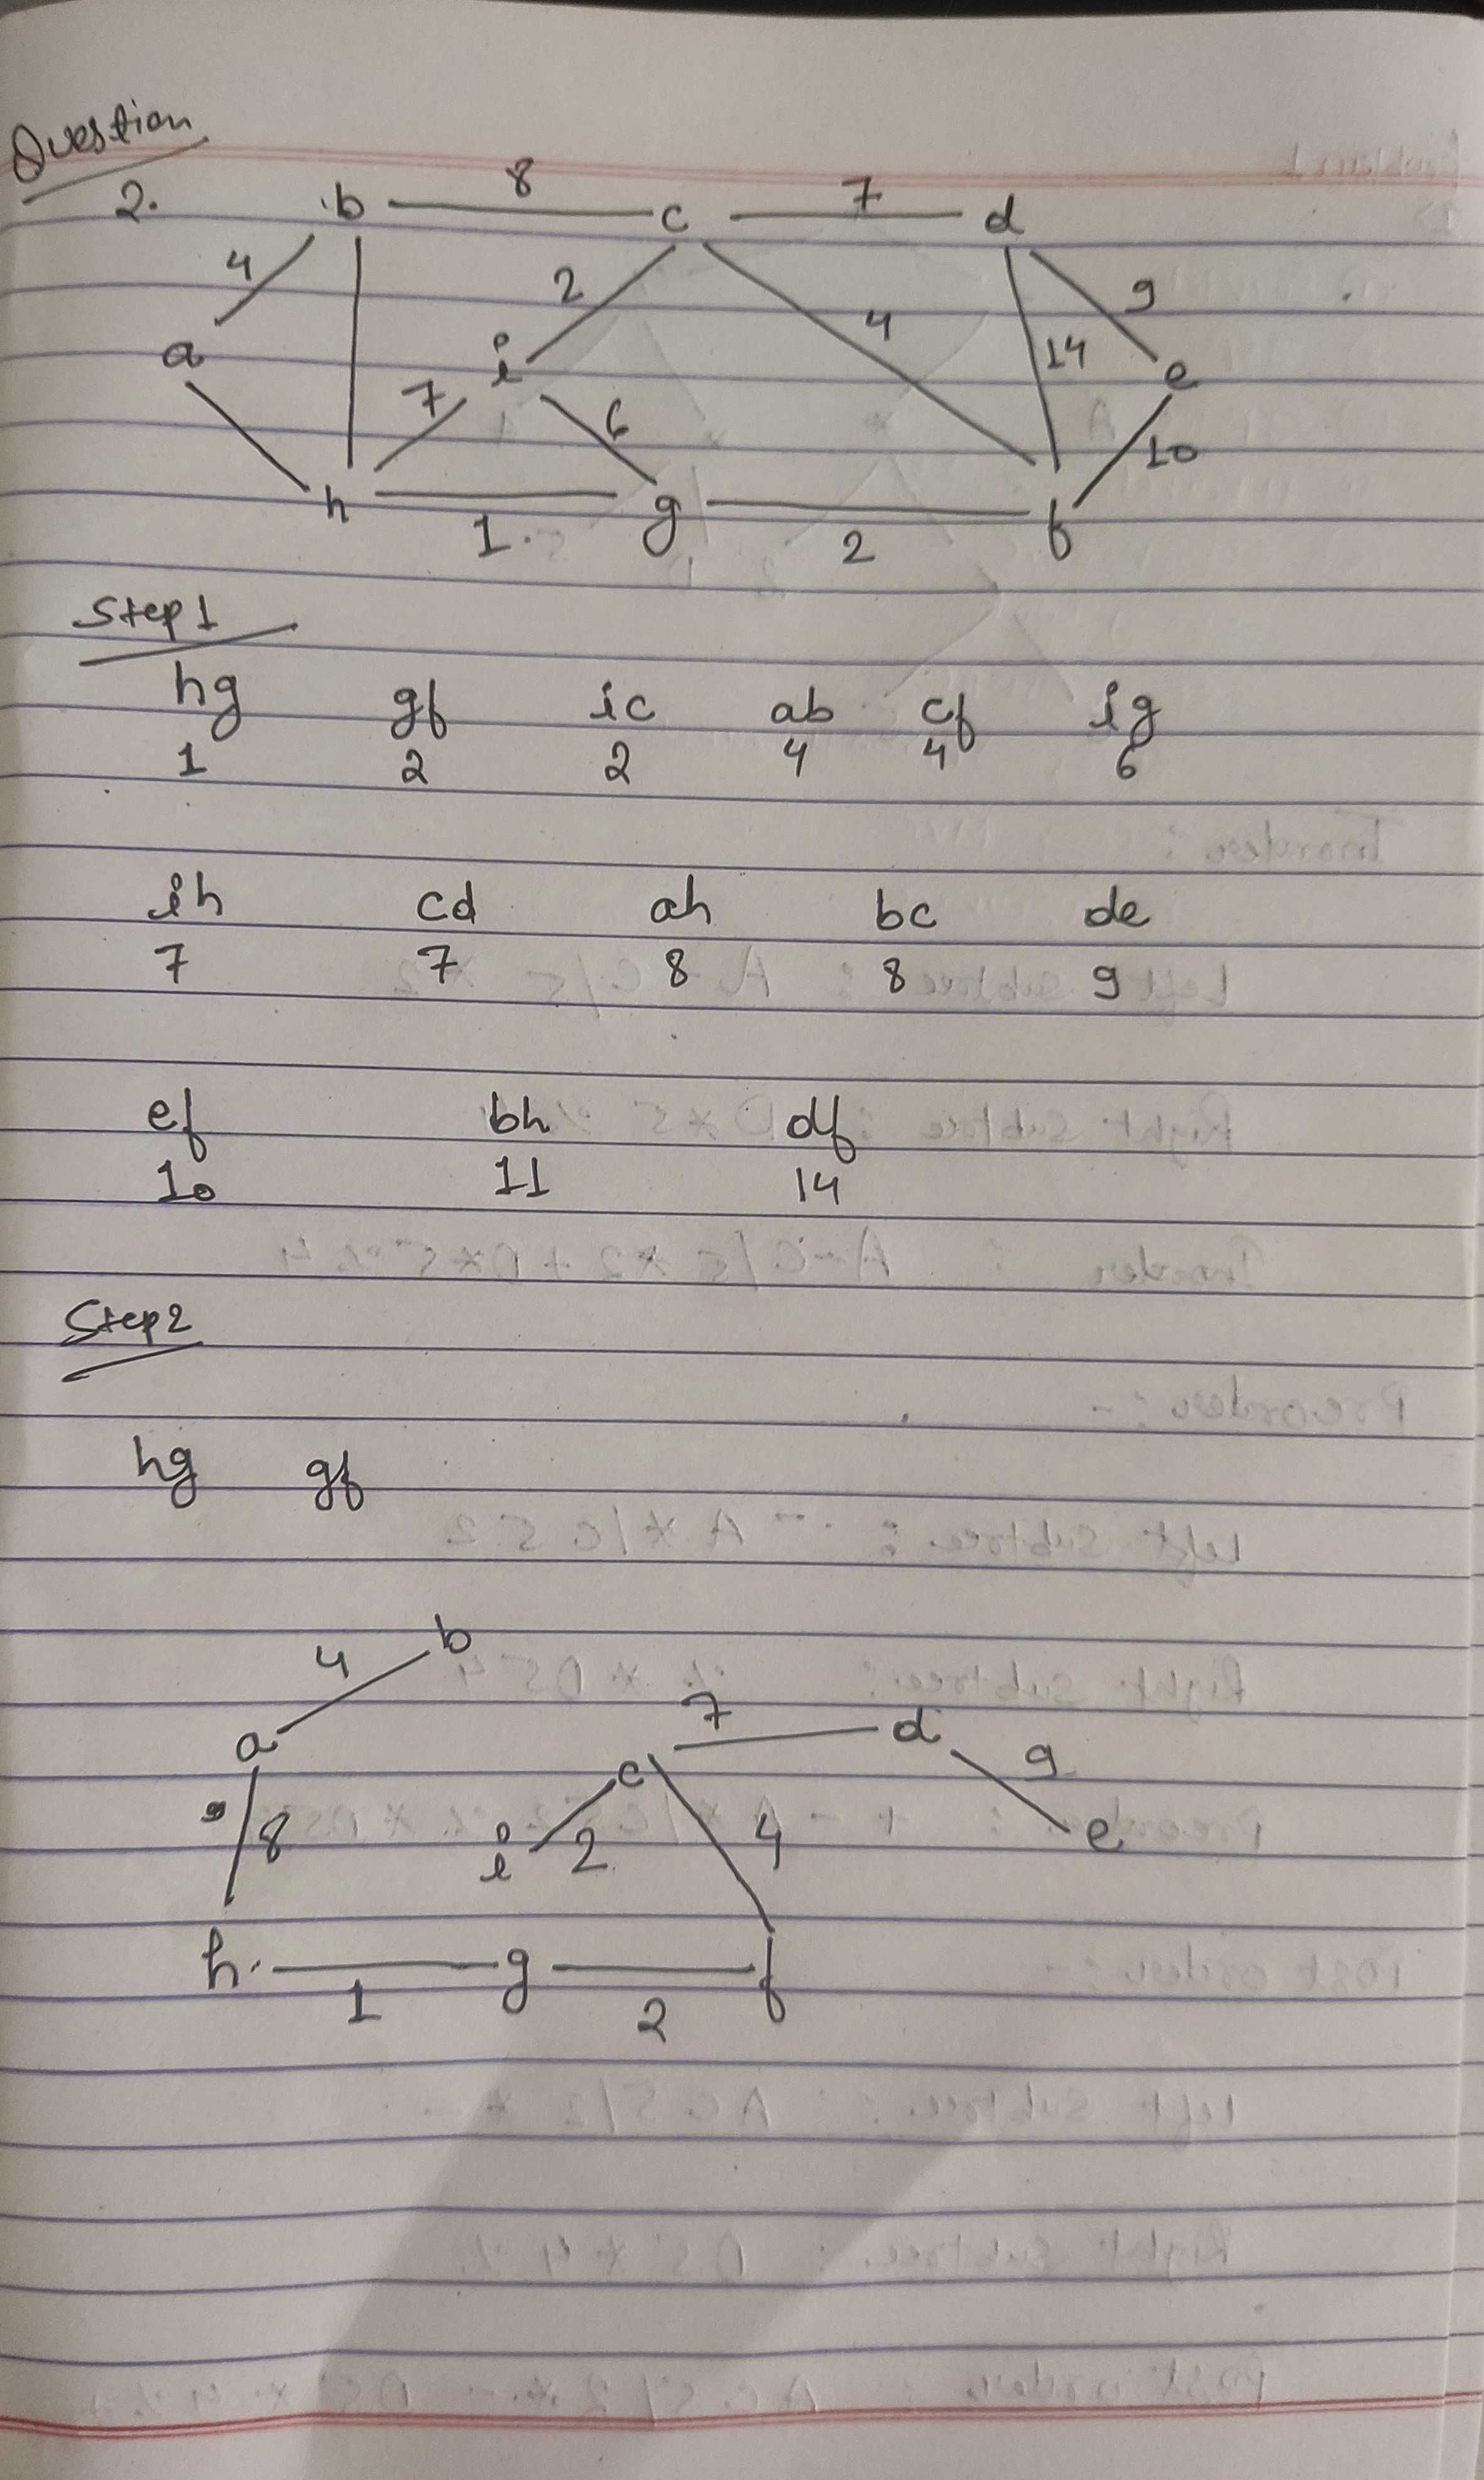 Question
2. b 8 c 7 d
4 2 4 14 9
a i e
7 6 10
h g f
1. 2
Step 1
hg gf ic ab cf ig
1 2 2 4 4 6
ih cd ah bc de
7 7 8 8 9
ef bh df
10 11 14
Step 2
hg gf
4 b
a 7 d 9
c
8 i 2 4 e
h. g f
1 2